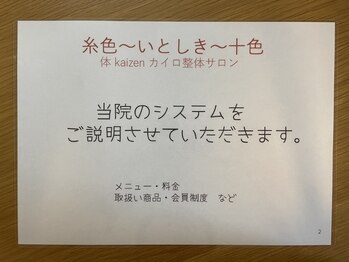 糸色～いとしき～十色
体 kaizen カイロ整体サロン
当院のシステムを
ご説明させていただきます。
メニュー・料金
取扱い商品・会員制度 など
2